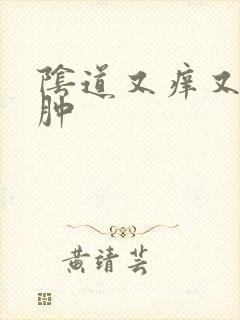 陰道又痒又
肿
黄靖芸